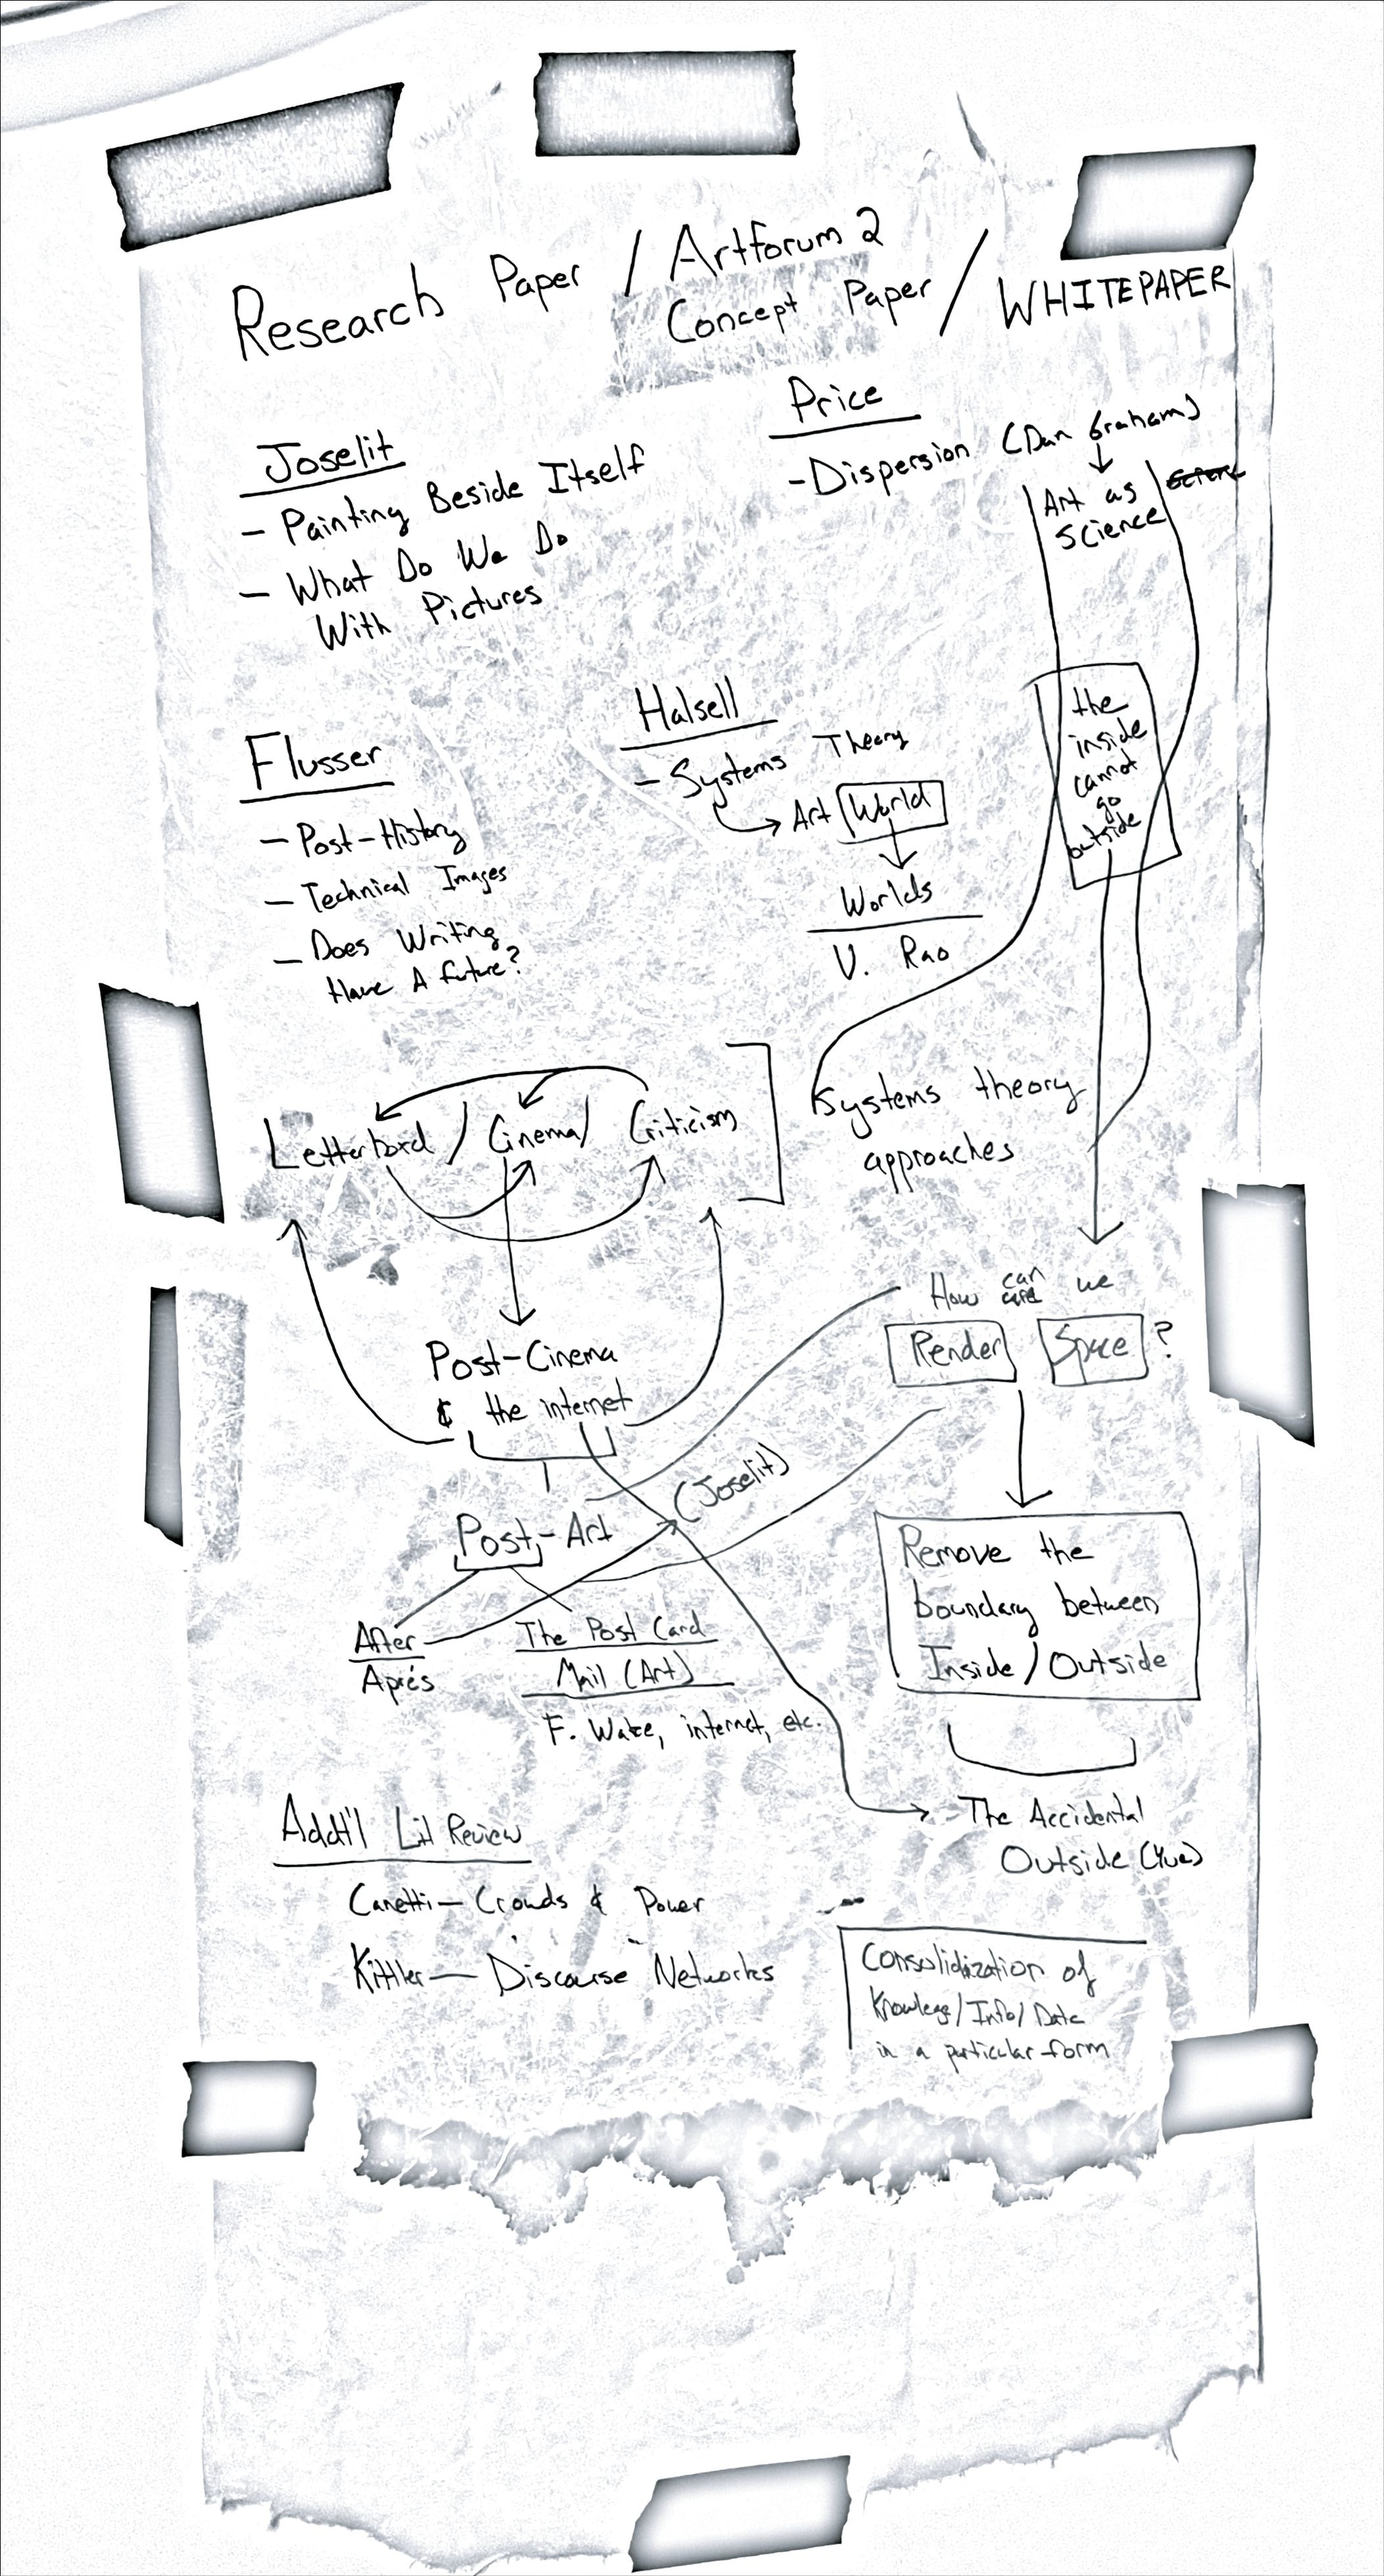 Research Paper / Artforum 2
Concept Paper / WHITEPAPER
Joselit
- Painting Beside Itself
- What Do We Do
With Pictures
Price
- Dispersion (Dan Graham)
Art as
Science
the
inside
cannot
go
outside
Flusser
- Post-History
- Technical Images
- Does Writing
Have A future?
Halsell
- Systems Theory
Art World
Worlds
V. Rao
Letterboxd / Cinema / Criticism
Systems theory
approaches
Post-Cinema
& the internet
How can we
Render Space ?
(Joselit)
Post-Art
After
Après
The Post Card
Mail (Art)
F. Wake, internet, etc.
Remove the
boundary between
Inside / Outside
The Accidental
Outside (Yue)
Addt'l Lit Review
Canetti - Crowds & Power
Kittler - Discourse Networks
Consolidization of
Knowlege / Info / Data
in a particular form